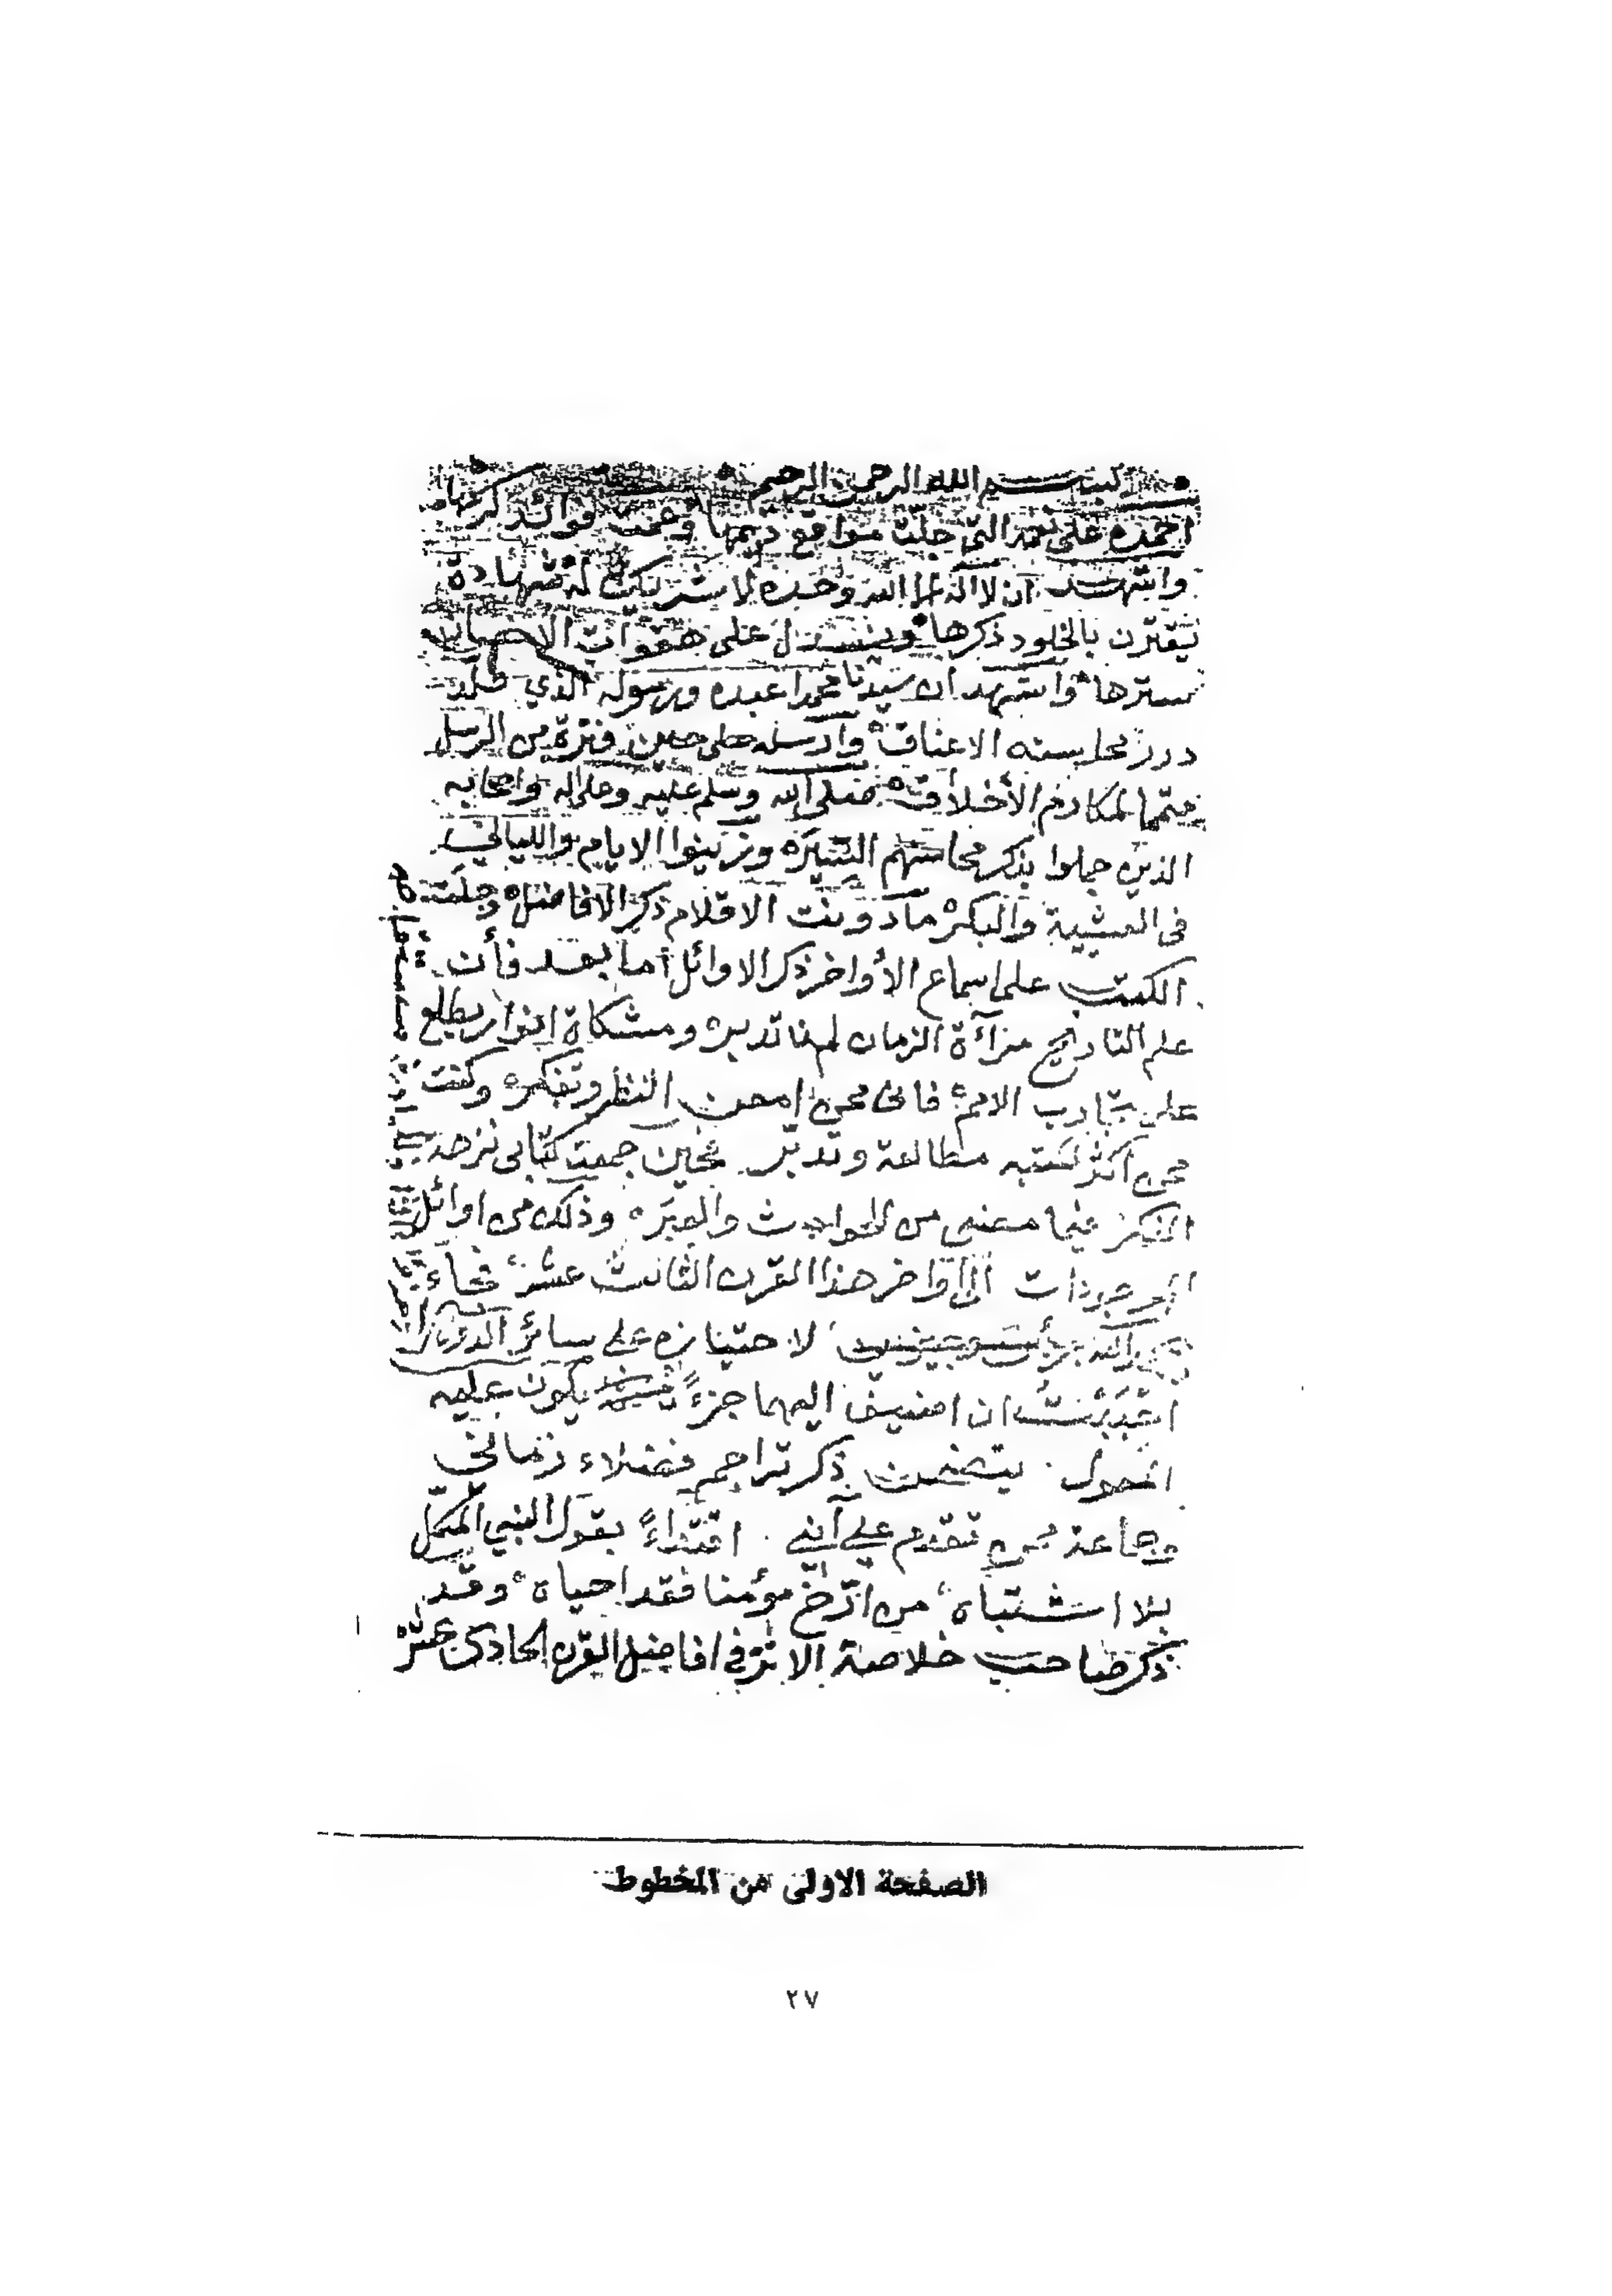 بسم الله الرحمن الرحيم
احمده على نعمه التي جلت مواقع ديمها وعمت فوائد كرمها
واشهد ان لا اله الا الله وحده لا شريك له شهادة
يقترن بالخلود ذكرها وينسدل على هفوات الانسان
سترها واشهد ان سيدنا محمدا عبده ورسوله الذي قلد
درر محاسنه الاعناق وارسله على حين فترة من الرسل
متمما لمكارم الأخلاق صلى الله وسلم عليه وعلى اله واصحابه
الذين جملوا بذكر محاسنهم السير وزينوا الايام والليالي
في العشية والبكر ما دونت الاقلام ذكر الافاضل وجلت
الكتب على اسماع الأواخر ذكر الاوائل أما بعد فأن
علم التاريخ مرآة الزمان لمن تدبر ومشكاة انوار يطلع
على تجارب الامم فاني ممن امعن النظر وتفكر وكنت
ممن اكثر لكتبه مطالعة وتدبر فحين جمعت كتابي نزهة
الفكر فيما مضى من الحوادث والعبر وذلك من اوائل
الموجودات الى أواخر هذا القرن الثالث عشر فجاء
بحمد الله لامتيازه على سائر
احببت ان اضيف اليهما جزءً يكون عليه
المعول يتضمن ذكر تراجم فضلاء زماني
وجماعة ممن تقدم على آني اقتداءً بقول النبي المكمل
بلا اشتباه من ارّخ مؤمنا فقد احياه وقد
ذكر صاحب خلاصة الاثر في افاضل القرن الحادي عشر
الصفحة الاولى من المخطوط
٢٧